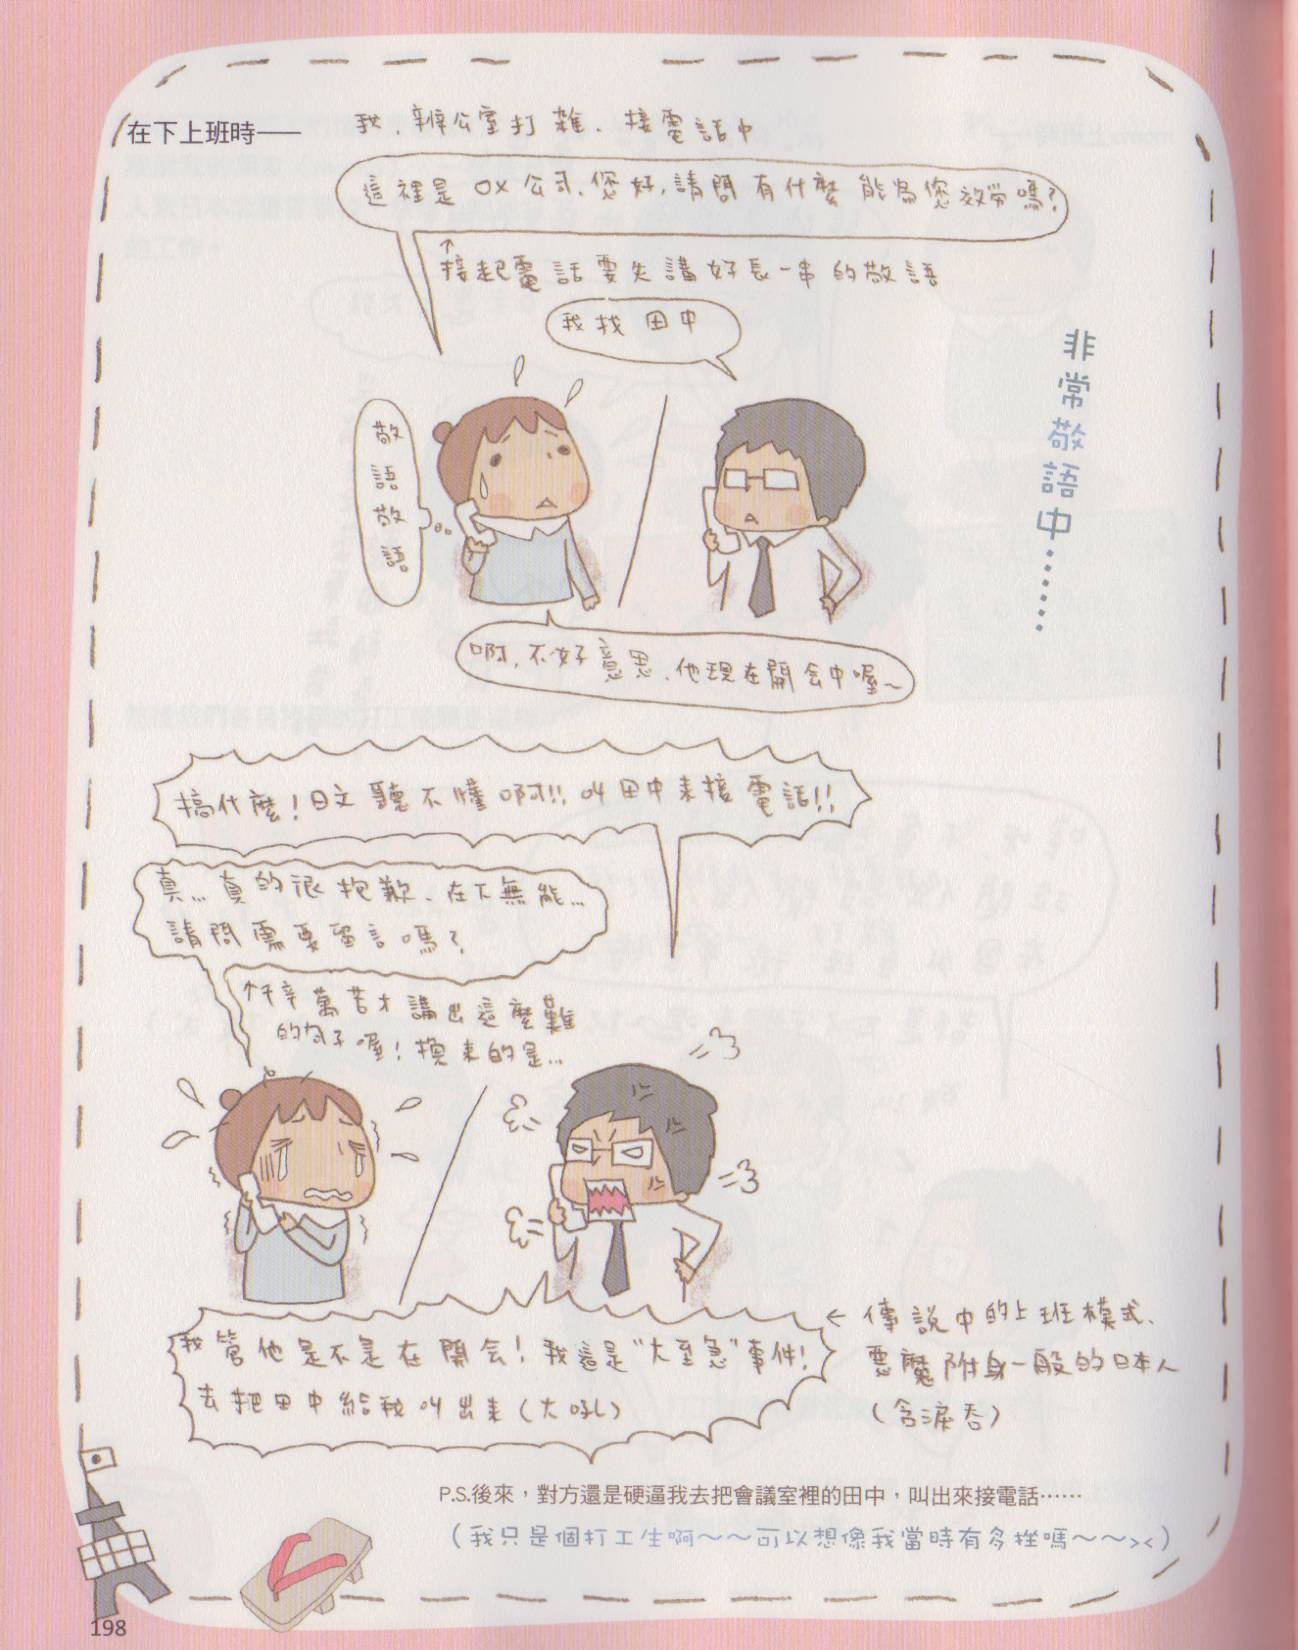 在下上班時──
我、辦公室打雜、接電話中
這裡是OX公司、您好,請問有什麼能為您效勞嗎?
↑接起電話要先講好長一串的敬語
我找田中
非常敬語中……
敬語敬語
啊,不好意思、他現在開会中喔~
搞什麼!日文聽不懂啊!!叫田中来接電話!!
真...真的很抱歉、在下無能...
請問需要留言嗎?
↑千辛萬苦才講出這麼難
的句子喔!換来的是...
我管他是不是在開会!我這是"大至急"事件!
去把田中給我叫出来(大吼)
←傳說中的上班模式、
惡魔附身一般的日本人
(含淚吞)
P.S.後來,對方還是硬逼我去把會議室裡的田中,叫出來接電話……
(我只是個打工生啊~~可以想像我當時有多挫嗎~~><)
198